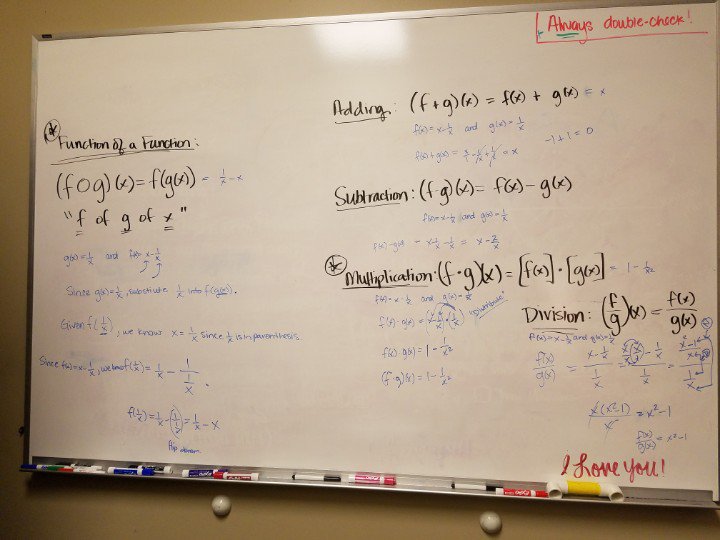 Always double-check!
Function of a Function:
(f o g)(x) = f(g(x)) = 1/x - x
"f of g of x"
g(x) = 1/x and f(x) = x - 1/x
Since g(x) = 1/x, substitute 1/x into f(g(x)).
Given f(1/x), we know x = 1/x since 1/x is in parenthesis
Since f(x) = x - 1/x, f(1/x) = 1/x - 1/(1/x).
f(1/x) = 1/x - (1/(1/x)) = 1/x - x
flip down
Adding: (f + g)(x) = f(x) + g(x) = x
f(x) = x - 1/x and g(x) = 1/x
-1 + 1 = 0
f(x) + g(x) = x - 1/x + 1/x = x
Subtraction: (f - g)(x) = f(x) - g(x)
f(x) = x - 1/x and g(x) = 1/x
f(x) - g(x) = x - 1/x - 1/x = x - 2/x
Multiplication: (f · g)(x) = [f(x)] · [g(x)] = 1 - 1/x²
f(x) = x - 1/x and g(x) = 1/x
f(x) · g(x) = (x - 1/x)(1/x)
f(x) · g(x) = 1 - 1/x²
(f · g)(x) = 1 - 1/x²
Division: (f/g)(x) = f(x)/g(x)
f(x) = x - 1/x and g(x) = 1/x
f(x)/g(x) = (x - 1/x)/(1/x)
x(x² - 1)/x = x² - 1
f(x)/g(x) = x² - 1
I Love you!